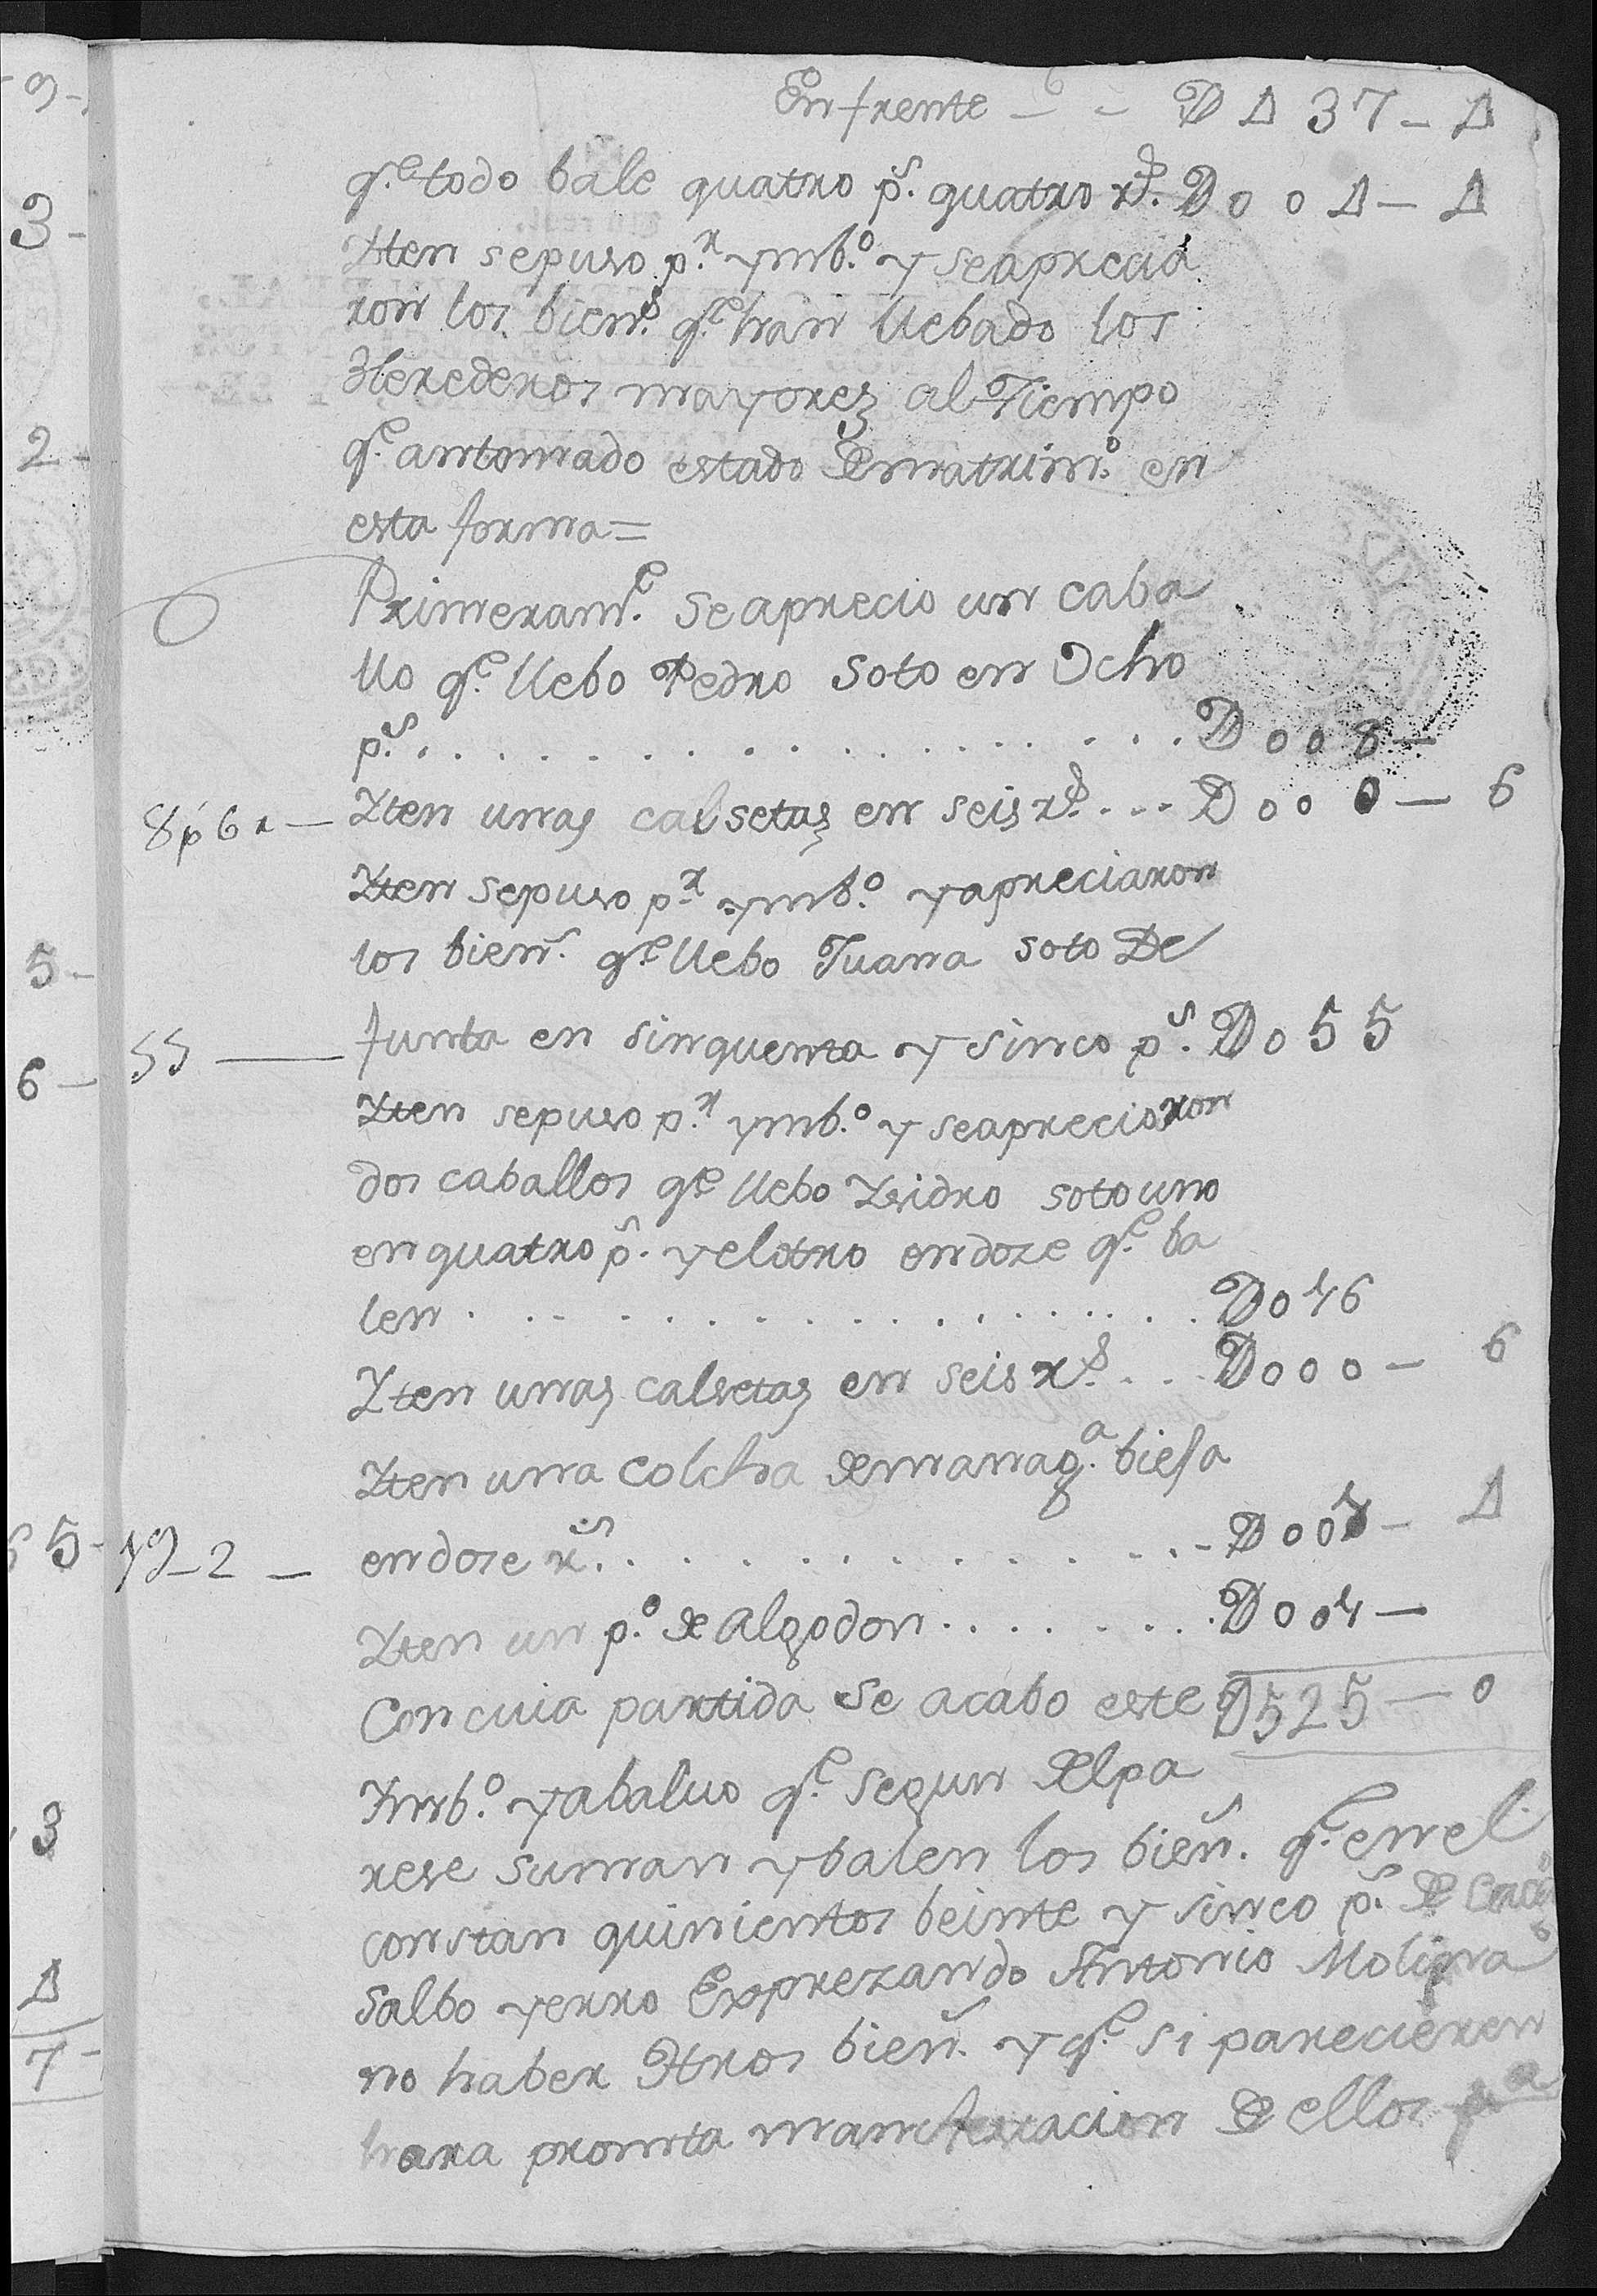 Enfrente - - D437-4
q.e todo bale quatro p.s quatro r.s D004-4
Yten sepuso p.r ymb.o y seaprecia
ron los bien.s q.e han llebado los
Herederos mayores al Tiempo
q.e antomado estado Dematrim.o en
esta forma=
Primeram.e seaprecio un caba
llo q.e llebo Pedro Soto en Ocho
p.s . . . . . . . . . . D008-
8p 6r- Yten unas calsetas en seis r.s ... D000-6
Yten sepuso p.r ymb.o yapreciaron
los bien.s q.e llebo Juana soto De
55 — Junta en sinquenta y sinco p.s D055
Yten sepuso p.r ymb.o y seapreciaron
dos caballos q.e llebo Ysidro soto uno
en quatro p.s y elotro endoze q.e ba
len . . . . . . . . . . D016
Yten unas calsetas en seis r.s ... D000-6
Yten una colcha demanag.a biesa
19-2 - endose r.s . . . . . . . . . . D001-4
Yten un p.o de Algodon . . . . . . . D001-
Con cuia partida se acabo este D525-0
Ymb.o yabaluo q.e segun Delpa
rese suman ybalen los bien.s q.e enel
constan quinientos beinte y sinco p.s De
Salbo yerro Exprezando Antonio Molina
no haber Otros bien.s y q.e si parecieren
hara pronta manifestacion De ellos p.a
3-
2-
5-
6-
5-
3
4
7-